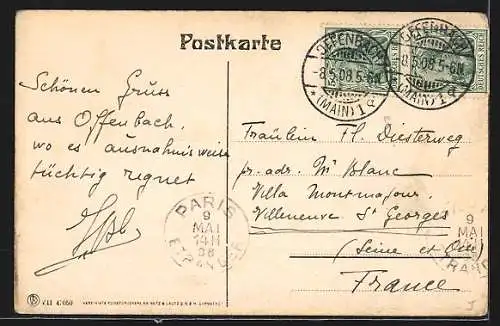 Postkarte
OFFENBACH
-8.5.08.5-6N.
(MAIN) 1
OFFENBACH
8.5.08.5-6N.
(MAIN) 1
DEUTSCHES REICH
Schönen Gruss
aus Offenbach,
wo es ausnahmsweise
tüchtig regnet
Fräulein Fl. Diesterweg
pr. adr. Mr Blanc
Villa Montmajour
Villeneuve St Georges
(Seine et Oise)
France
PARIS
9
MAI
14H
08
ETRANGER
9
MAI
VII 47050